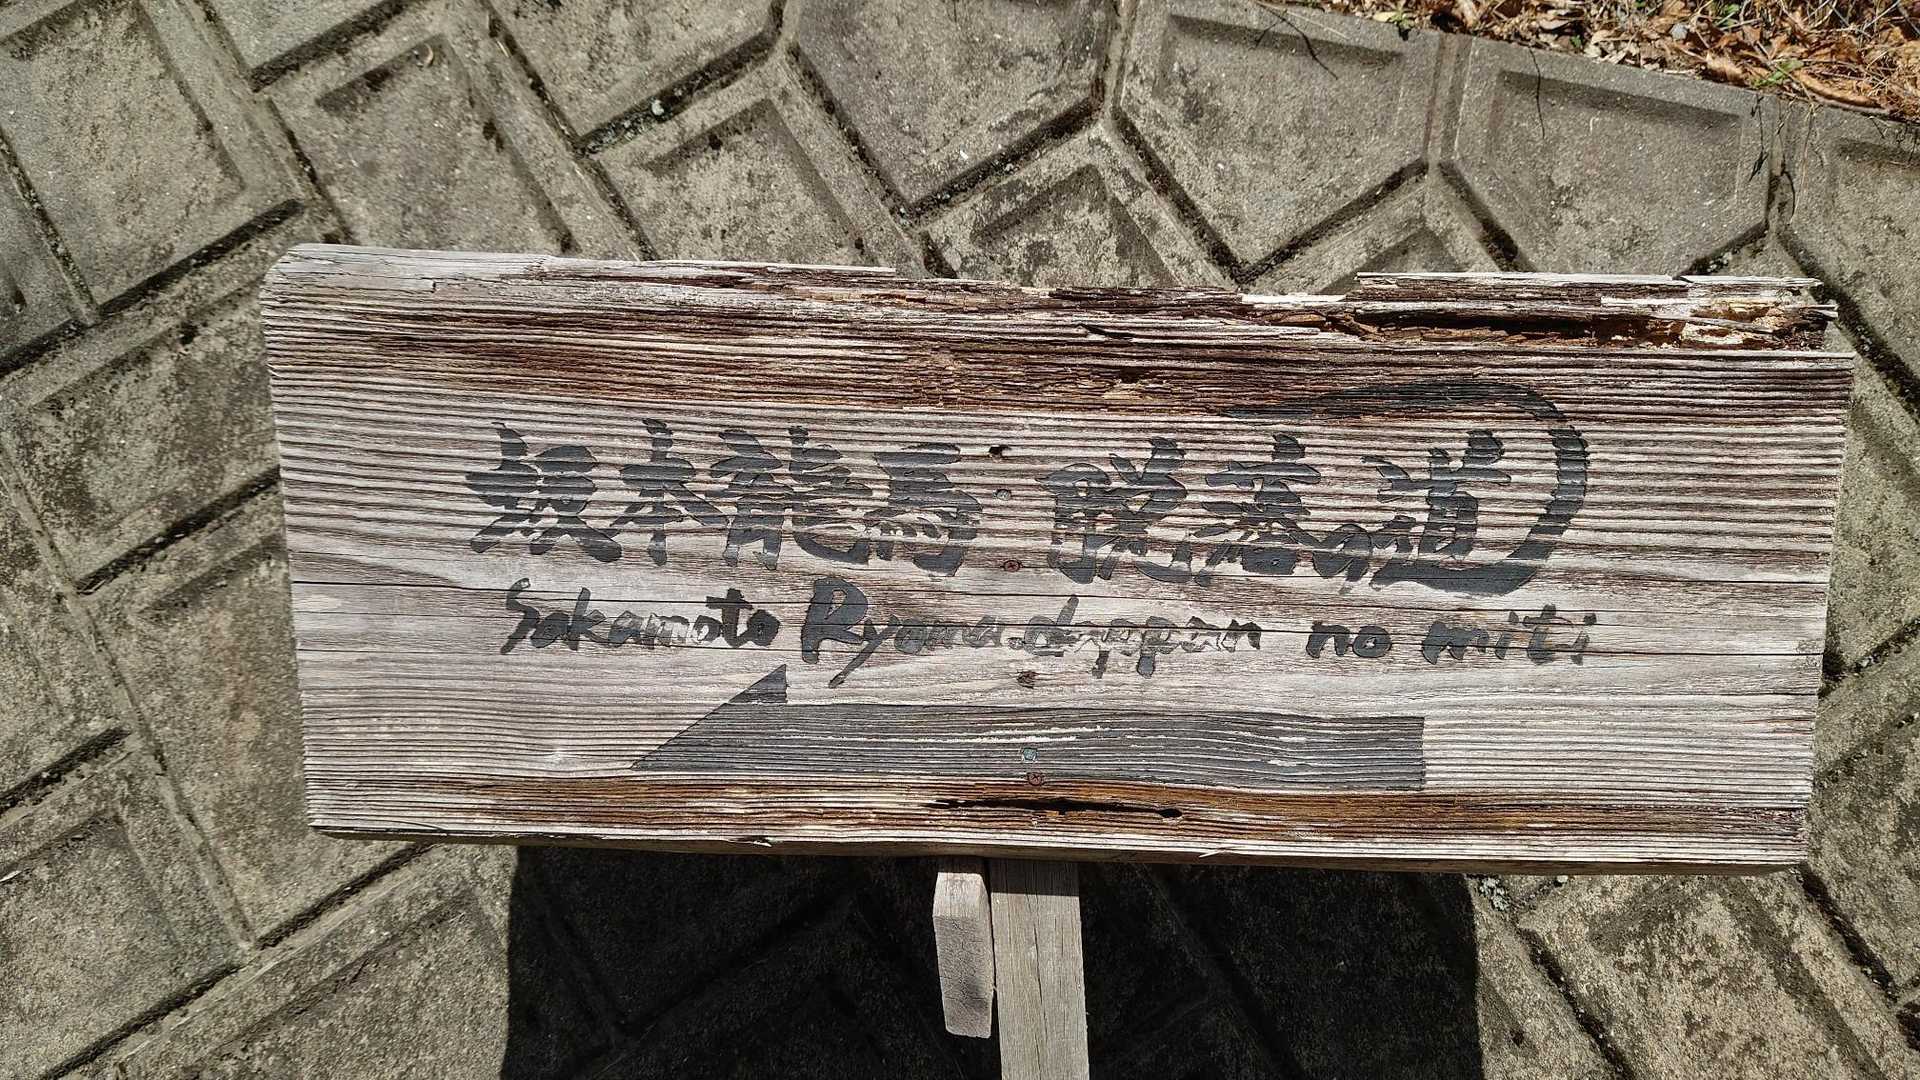 坂本龍馬 脱藩の道
Sakamoto Ryoma dappan no miti